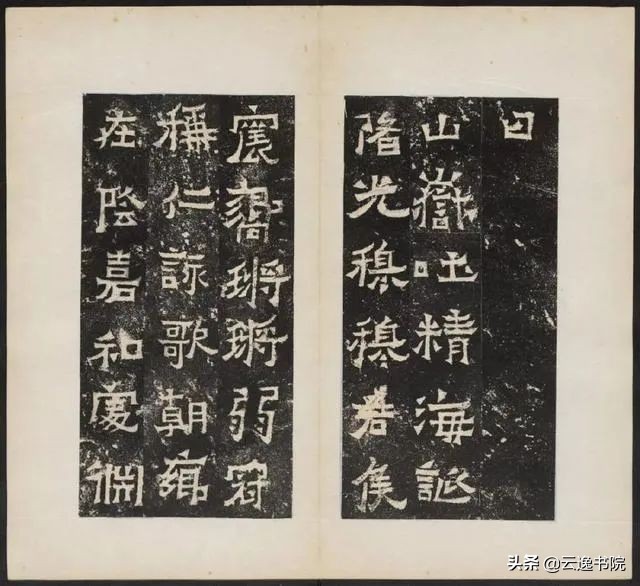 曰
山嶽吐精海誕
光穆穆君侯
震響鏘鏘弱冠
稱仁詠歌朝鄉
在陰嘉和處淵
头条 @云逸书院